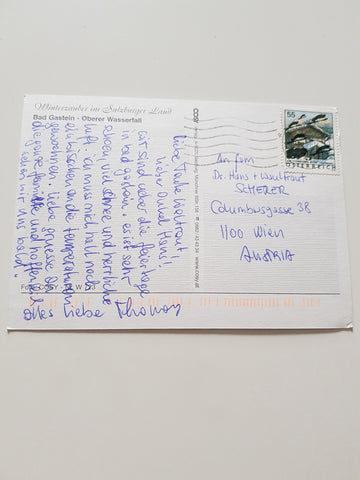 Winterzauber im Salzburger Land
Bad Gastein - Oberer Wasserfall
Liebe Tante Waltraut!
lieber Onkel Hans!
wir sind über die feiertage
in bad gastein. es ist sehr
schön, viel schnee und herrliche
luft. ich muss mich halt noch
ein bisschen an die temperaturen
gewöhnen. liebe gruesse an
die ganze familie und hoffentlich
sehen wir uns bald!
alles liebe Thomas
COSY
55
ÖSTERREICH
An fam
Dr. Hans + Waultraut
SCHERER
Columbusgasse 38
1100 Wien
AUSTRIA